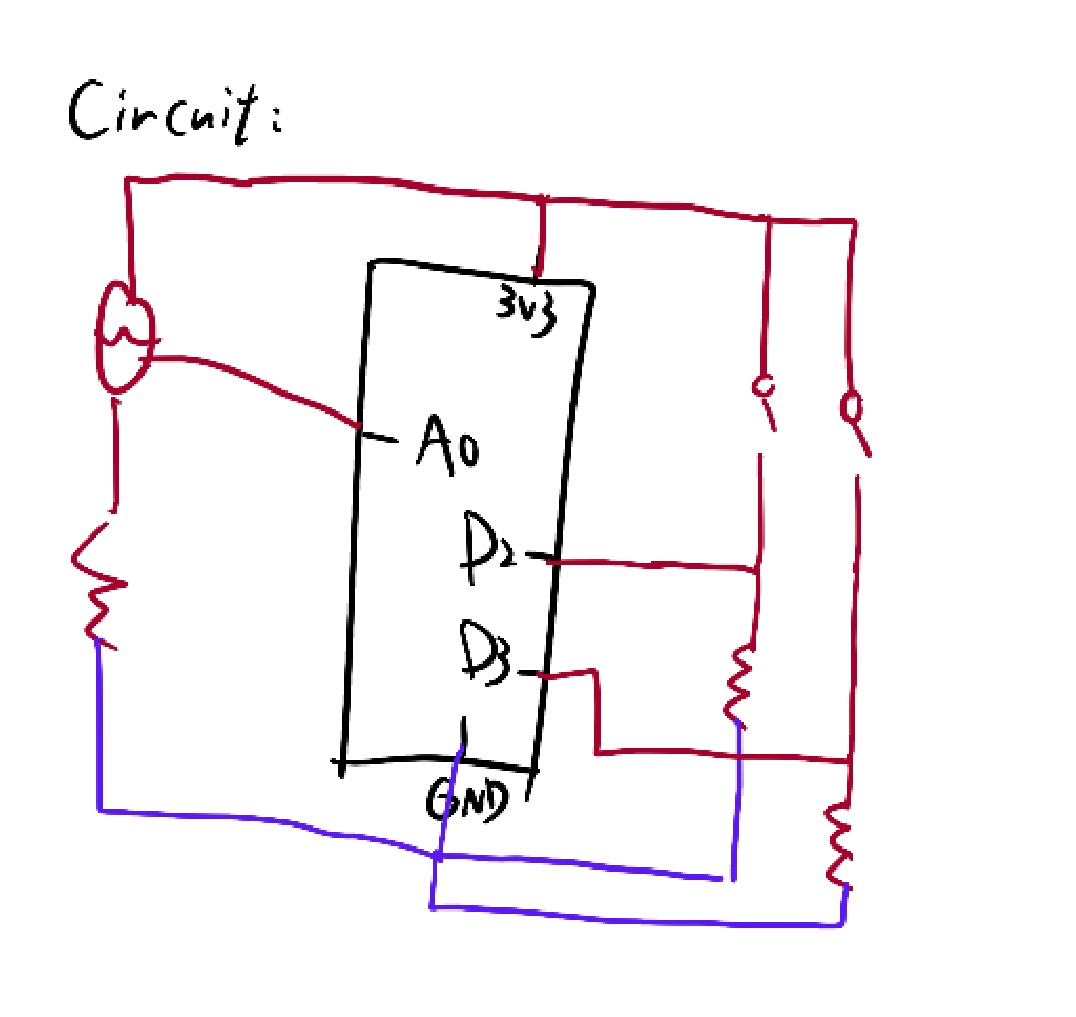 Circuit:
3v3
A0
D2
D3
GND